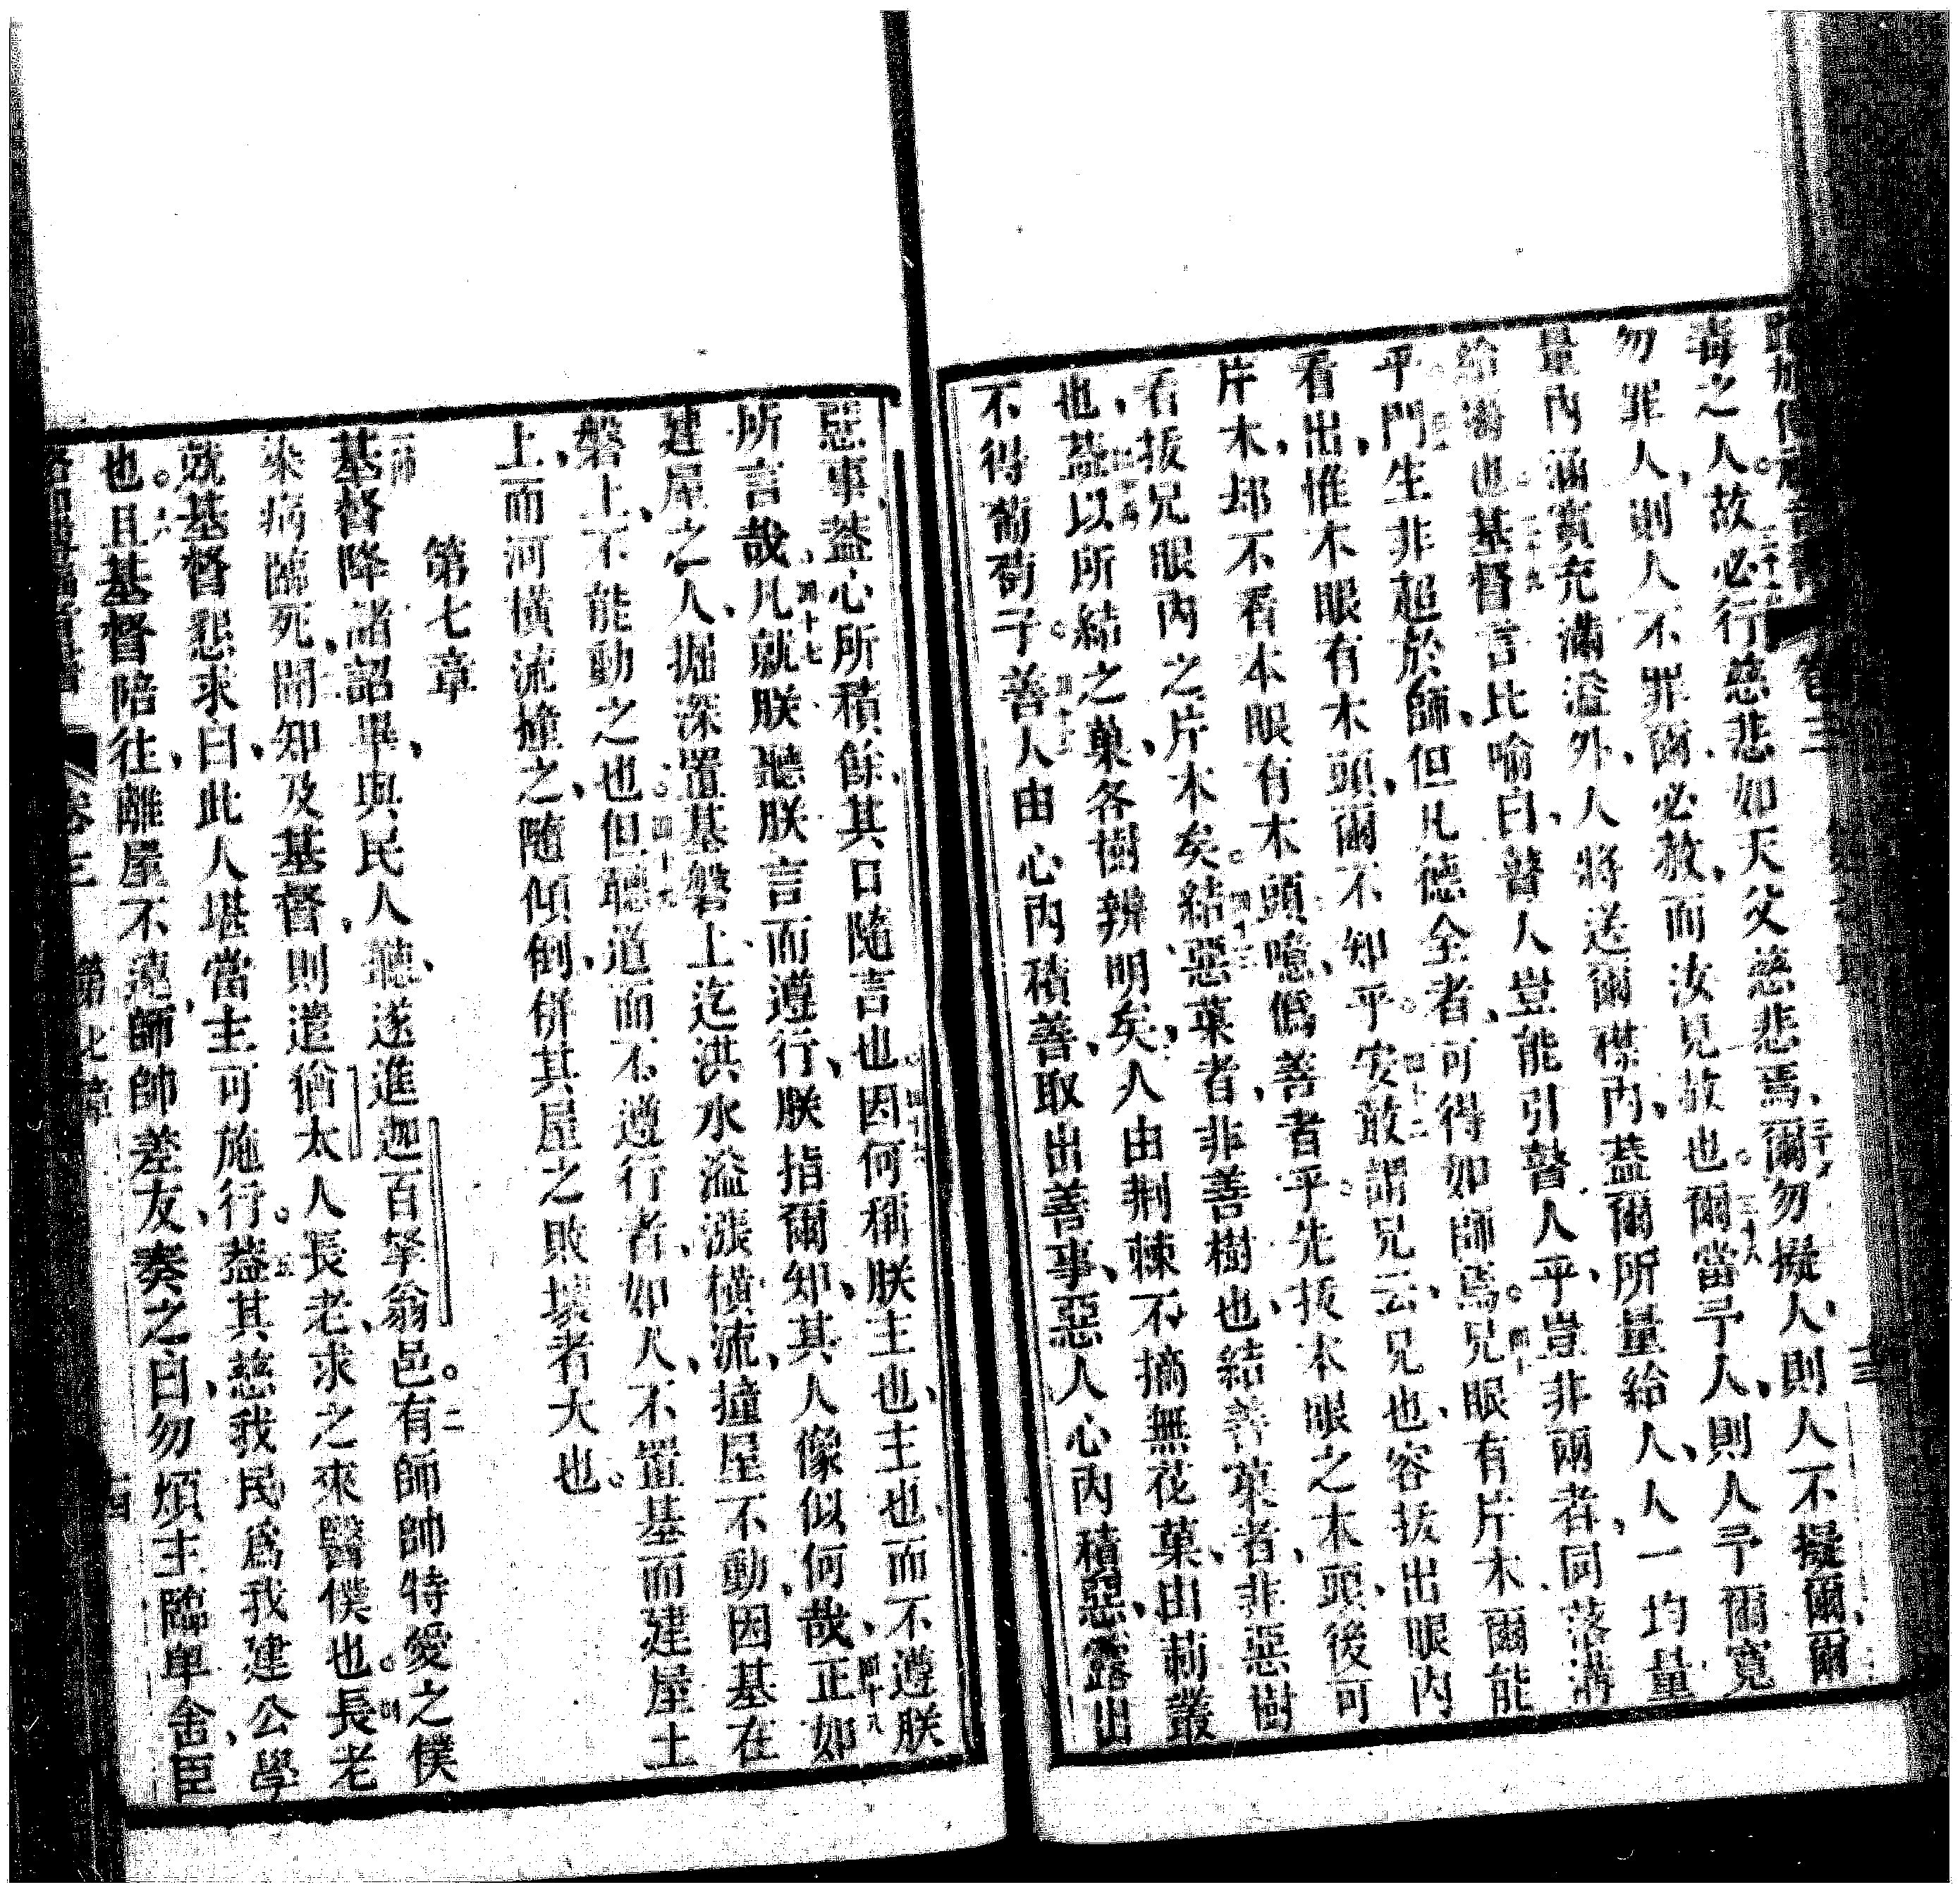 毒之人。故必行慈悲如天父慈悲焉、爾勿擬人、則人不擬爾、爾
勿罪人、則人不罪爾、必赦、而汝見赦也。爾當予人、則人予爾寬
量內涵實充滿溢外、人將送爾襟內、蓋爾所量給人、人一均量
給爾也。基督言比喻曰、瞽人豈能引瞽人乎、豈非兩者、同落溝
乎。門生非超於師、但凡德全者、可得如師焉。兄眼有片木爾能
看出、惟木眼有木頭、爾不知乎。安敢謂兄云、兄也、容拔出眼內
片木、却不看本眼有木頭、噫、僞善者乎。先拔本眼之木頭、後可
看拔兄眼內之片木矣。結惡菓者、非善樹也、結善菓者、非惡樹
也、蓋以所結之菓、各樹辨明矣、人由荊棘不摘無花菓、由莿叢
不得葡萄子。善人由心內積善、取出善事、惡人心內積惡、露出
惡事、蓋心所積餘、其口隨言也。因何稱朕主也、主也、而不遵朕
所言哉。凡就朕聽朕言而遵行、朕指爾知、其人像似何哉、正如
建屋之人、掘深置基磐上、迄洪水溢漲橫流、撞屋不動、因基在
磐上、不能動之也。但聽道而不遵行者、如人、不置基而建屋土
上、而河橫流撞之、隨傾倒、併其屋之敗壞者大也。
第七章
基督降諸詔畢、與民人聽、遂進迦百拏翁邑。二有師帥特愛之僕
染病臨死、聞知及基督、則遣猶太人長老、求之來醫僕也。長老
就基督懇求曰、此人堪當主可施行。五蓋其慈我民爲我建公學
也。六且基督陪往、離屋不遠、師帥差友、奏之曰、勿煩主臨卑舍、臣
卷三 第七章 十四